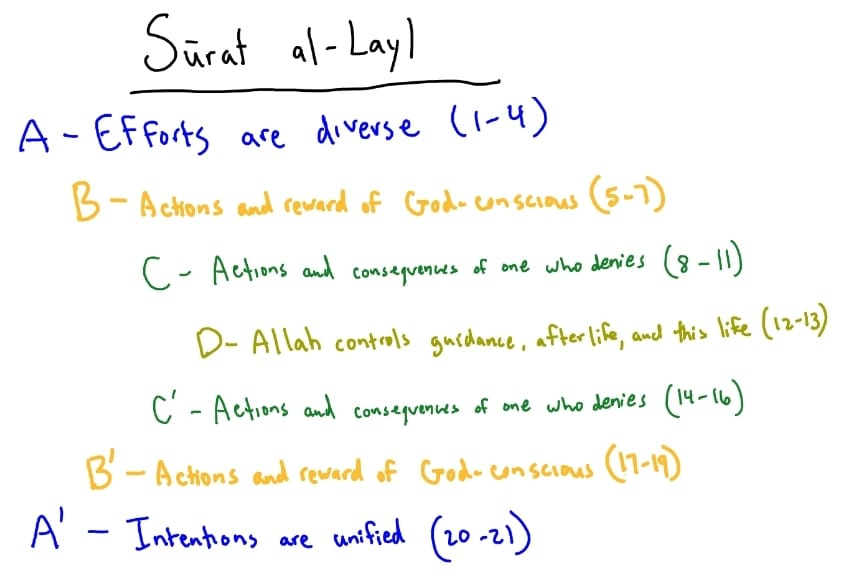 Sūrat al-Layl
A - Efforts are diverse (1-4)
B - Actions and reward of God-conscious (5-7)
C - Actions and consequences of one who denies (8-11)
D- Allah controls guidance, afterlife, and this life (12-13)
C' - Actions and consequences of one who denies (14-16)
B' - Actions and reward of God-conscious (17-19)
A' - Intentions are unified (20-21)